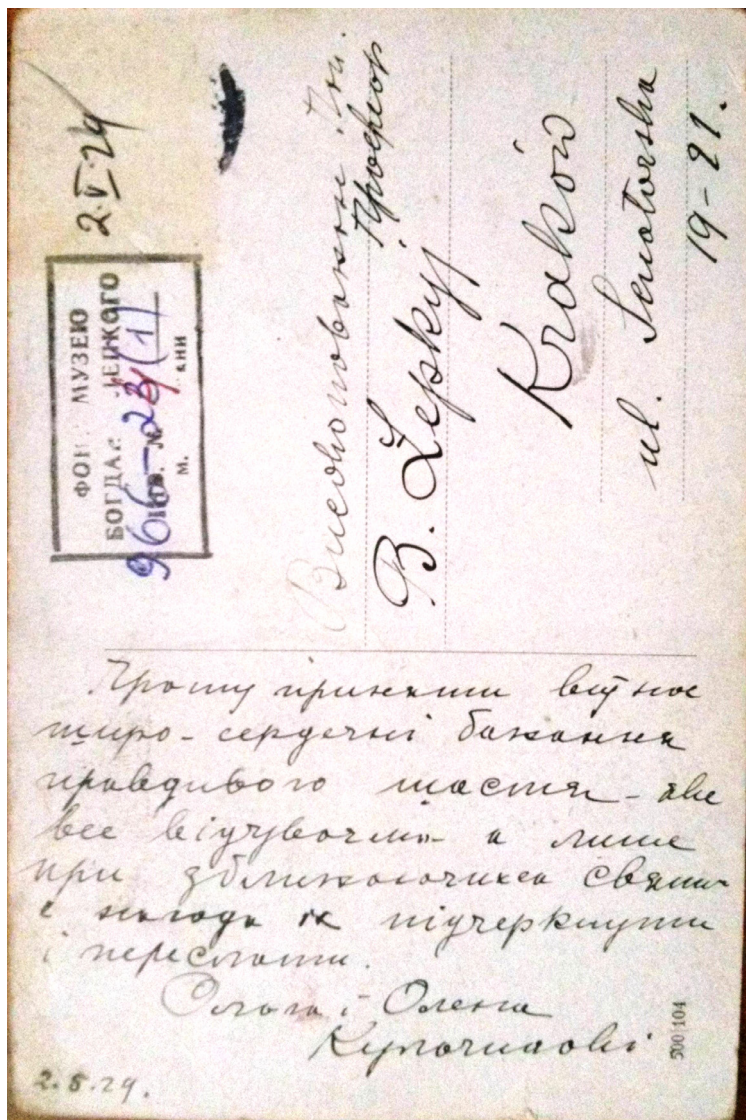 2.V.29
ФОН МУЗЕЮ
БОГДАН ЛЕПКОГО
ІНВ. №
966-24 (1)
м.
Високоповажний Пан
Професор
B. Łepkyj
Kraków
ul. Senatorska
19-21.
Прошу приняти від нас
щиро-сердечні бажання
правдивого щастя - яке
все відчуваєм а лише
при зближаючихся святах
є нагода їх підчеркнути
і переслати.
Ольга і Олена
Кульчицькі
2.5.29.
500 104